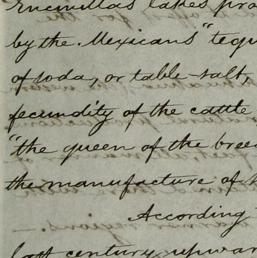 Encinillas lakes pro
by the Mexicans "tequ
of soda, or table-salt,
fecundity of the cattle
"the queen of the bree
the manufacture of
According
last century, upwar